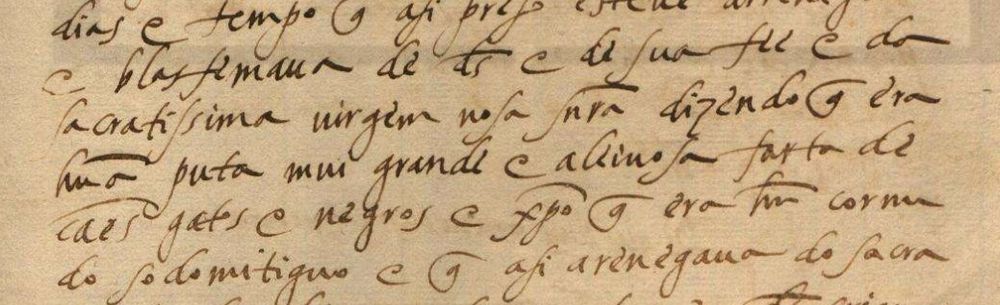 dias e tempo q̃ asi preso esteve
e blasfemaua de ds̃ e de sua fee e da
sacratissima uirgem nosa snr̃a dizendo q̃ era
huã puta mui grande e aleiuosa farta de
cães gatos e negros e xp̃o q̃ era hũ cornu
do sodomitiguo e q̃ asi arenegaua do sacra